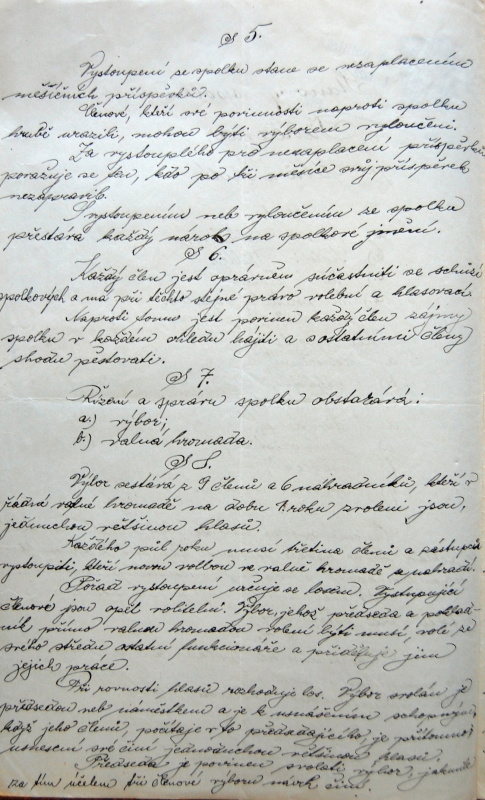 § 5.
Vystoupení ze spolku stane se nezaplacením
měsíčních příspěvků.
Členové, kteří své povinnosti naproti spolku
hrubě urazili, mohou býti výborem vyloučeni.
Za vystouplého pro nezaplacení příspěvku
považuje se ten, kdo po tři měsíce svůj příspěvek
nezapravil.
S vystoupením neb vyloučením ze spolku
přestává každý nárok na spolkové jmění.
§ 6.
Každý člen jest oprávněn súčastniti se schůzí
spolkových a má při těchto stejné právo volební a hlasovací.
Naproti tomu jest povinen každý člen zájmy
spolku v každém ohledu hájiti a s ostatními členy
shodu pěstovati.
§ 7.
Řízení a správu spolku obstarává:
a.) výbor;
b.) valná hromada.
§ 8.
Výbor sestává z 9 členů a 6 náhradníků, kteří v
řádné valné hromadě na dobu 1 roku zvoleni jsou,
jednuchou většinou hlasů.
Každého půl roku musí třetina členů a zástupců
vystoupiti, kteří novou volbou ve valné hromadě se nahradí.
Pořad vystoupení určuje se losem. Vystupující
členové jsou opět volitelni. Výbor, jehož předseda a poklad-
ník přímo valnou hromadou voleni býti musí, volí ze
svého středu ostatní funkcionáře a přiděluje jim
jejich práce.
Při rovnosti hlasů rozhoduje los. Výbor svolán je
předsedou neb náměstkem a je k usnášením schopným,
když jeho členů, počítaje v to předsedajícího je přítomno;
usnesení své činí jednoduchou většinou hlasů.
Předseda je povinen svolati výbor, jakmile
za tím účelem tři členové výboru návrh činí.